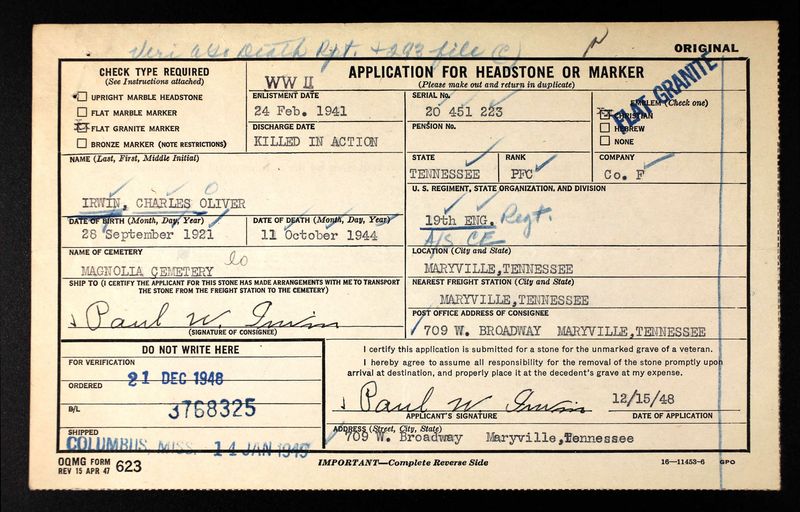 Veri also Death Rpt. + 293 file (C)
ORIGINAL
CHECK TYPE REQUIRED
(See Instructions attached)
UPRIGHT MARBLE HEADSTONE
FLAT MARBLE MARKER
FLAT GRANITE MARKER
BRONZE MARKER (NOTE RESTRICTIONS)
WW II
APPLICATION FOR HEADSTONE OR MARKER
(Please make out and return in duplicate)
ENLISTMENT DATE
24 Feb. 1941
DISCHARGE DATE
KILLED IN ACTION
SERIAL No.
20 451 223
PENSION No.
EMBLEM (Check one)
CHRISTIAN
HEBREW
NONE
FLAT GRANITE
NAME (Last, First, Middle Initial)
IRWIN, CHARLES OLIVER
STATE
TENNESSEE
RANK
PFC
COMPANY
Co. F
U. S. REGIMENT, STATE ORGANIZATION, AND DIVISION
19th ENG. Regt.
A/S CE
DATE OF BIRTH (Month, Day, Year)
28 September 1921
DATE OF DEATH (Month, Day, Year)
11 October 1944
NAME OF CEMETERY
MAGNOLIA CEMETERY
LOCATION (City and State)
MARYVILLE,TENNESSEE
SHIP TO (I CERTIFY THE APPLICANT FOR THIS STONE HAS MADE ARRANGEMENTS WITH ME TO TRANSPORT
THE STONE FROM THE FREIGHT STATION TO THE CEMETERY)
NEAREST FREIGHT STATION (City and State)
MARYVILLE,TENNESSEE
Paul W. Irwin
(SIGNATURE OF CONSIGNEE)
POST OFFICE ADDRESS OF CONSIGNEE
709 W. BROADWAY MARYVILLE,TENNESSEE
DO NOT WRITE HERE
FOR VERIFICATION
ORDERED
21 DEC 1948
B/L
3768325
SHIPPED
COLUMBUS, MISS. 14 JAN 1949
I certify this application is submitted for a stone for the unmarked grave of a veteran.
I hereby agree to assume all responsibility for the removal of the stone promptly upon
arrival at destination, and properly place it at the decedent's grave at my expense.
Paul W Irwin
12/15/48
APPLICANT'S SIGNATURE
DATE OF APPLICATION
ADDRESS (Street, City, State)
709 W. Broadway Maryville,Tennessee
OQMG FORM
REV 15 APR 47
623
IMPORTANT—Complete Reverse Side
16—11453-6 GPO